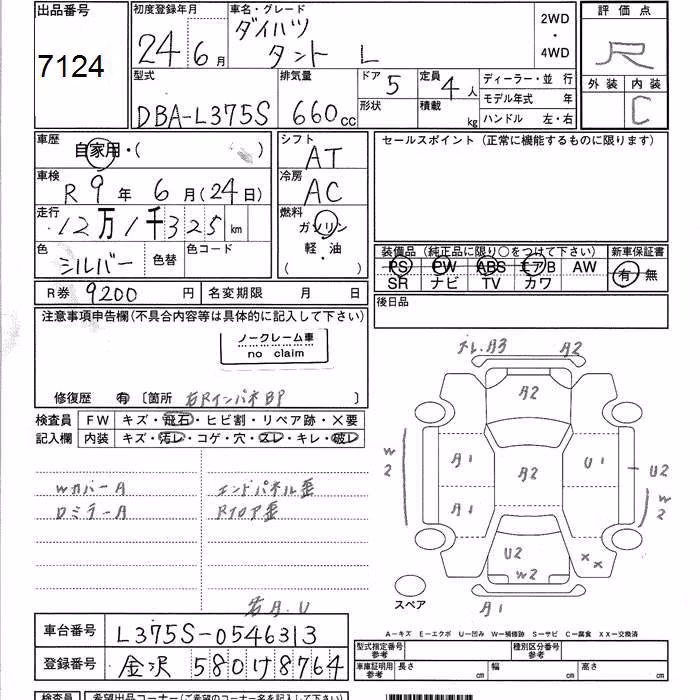 出品番号
7124
初度登録年月
24 6月
車名・グレード
ダイハツ
タント L
2WD
・
4WD
評価点
R
外装 内装
C
型式
DBA-L375S
排気量
660cc
ドア 5
形状
定員 4人
積載 kg
ディーラー・並 行
モデル年式 年
ハンドル 左・右
車歴
自家用・( )
車検
R 9年 6月(24日)
走行
12万1千325km
色
シルバー
色替
色コード
シフト
AT
冷房
AC
燃料
ガソリン
軽・油
( )
セールスポイント(正常に機能するものに限ります)
装備品(純正品に限り○をつけて下さい)
PS PW ABS エアB AW
SR ナビ TV カワ
新車保証書
有 無
後日品
R券 9200 円
名変期限 月 日
注意事項申告欄(不具合内容等は具体的に記入して下さい)
ノークレーム車
no claim
修復歴 有 〔箇所 右Rインパネ BP 〕
検査員
記入欄
FW キズ・飛石・ヒビ割・リペア跡・×要
内装 キズ・汚レ・コゲ・穴・スレ・キレ・破レ
Wカバー A
ロミラー A
エンドパネル歪
Rフロア歪
A3 A2
A2
W2 A1 A2 U1 U2
A1 W2
U2
W2
××
A1
スペア
A−キズ E−エクボ U−凹み W−補修跡 S−サビ C−腐食 XX−交換済
車台番号 L375S-0546313
登録番号 金沢 580 け 8764
型式指定番号
参考
種別区分番号
参考
車庫証明用
参考
長さ cm 幅 cm 高さ cm
検査員
希望出品コーナー(ご希望のコーナー名を記入して下さい)